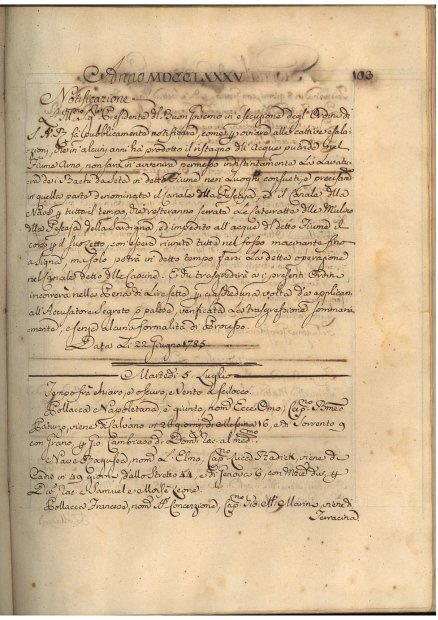 Anno MDCCLXXXV 103
Notificazione
Presidente del Buon Governo in esecuzione degl'Ordini di
S. A. R. fa pubblicamente notificare, come
zioni, che in alcuni anni ha prodotto il ristagno dell'Acque putride nel
Fiume Arno, non sarà in avvenire permesso indistintamente la Lavatura
dei Bachi da Seta in detto Fiume nei Luoghi consueti, e precisam
in quella parte denominata il Canale della Pescaja, e il Canale della
Nave p tutto il tempo, che resteranno serrate Le Cateratte delle Mulina
della Pescaja della Sardigna, ed impedito all'acque di detto Fiume il
corso p il suo Letto, con essere riunite tutte nel fosso macinante fino
a Signa, ma solo potrà in detto tempo farsi La detta operazione
nel Canale detto delle Cascine. E chi trasgredirà a' presenti Ordini
incorrerà nella Pena di Lire sette p ciascheduna volta d'applicarsi
all'Accusatore segreto, o palese, verificata La trasgressione sommaria
mente, e senza alcuna formalità di Processo.
Data Li 22 Giugno 1785
Martedì 5. Luglio
Tempo frà chiaro, e oscuro, e Vento di Scilocco.
Pollacca Napoletana, è giunto, nom. Ecce Omo, Cap.no Romeo
viene di in 28 giorni, di Messina 16, e di Sorrento 9
con Grano, p Gio al med.mo
Nave Ragusea, nom. L'Elmo, Cap. Luca viene di
Cadice in 49 giorni dallo Stretto 44, e di Genova 6, con p
Isac e Samuel e Moisè Leone.
Pollacca Francese, nom. Concenzione, Cap.no Gio. Marini, viene di
Terracina